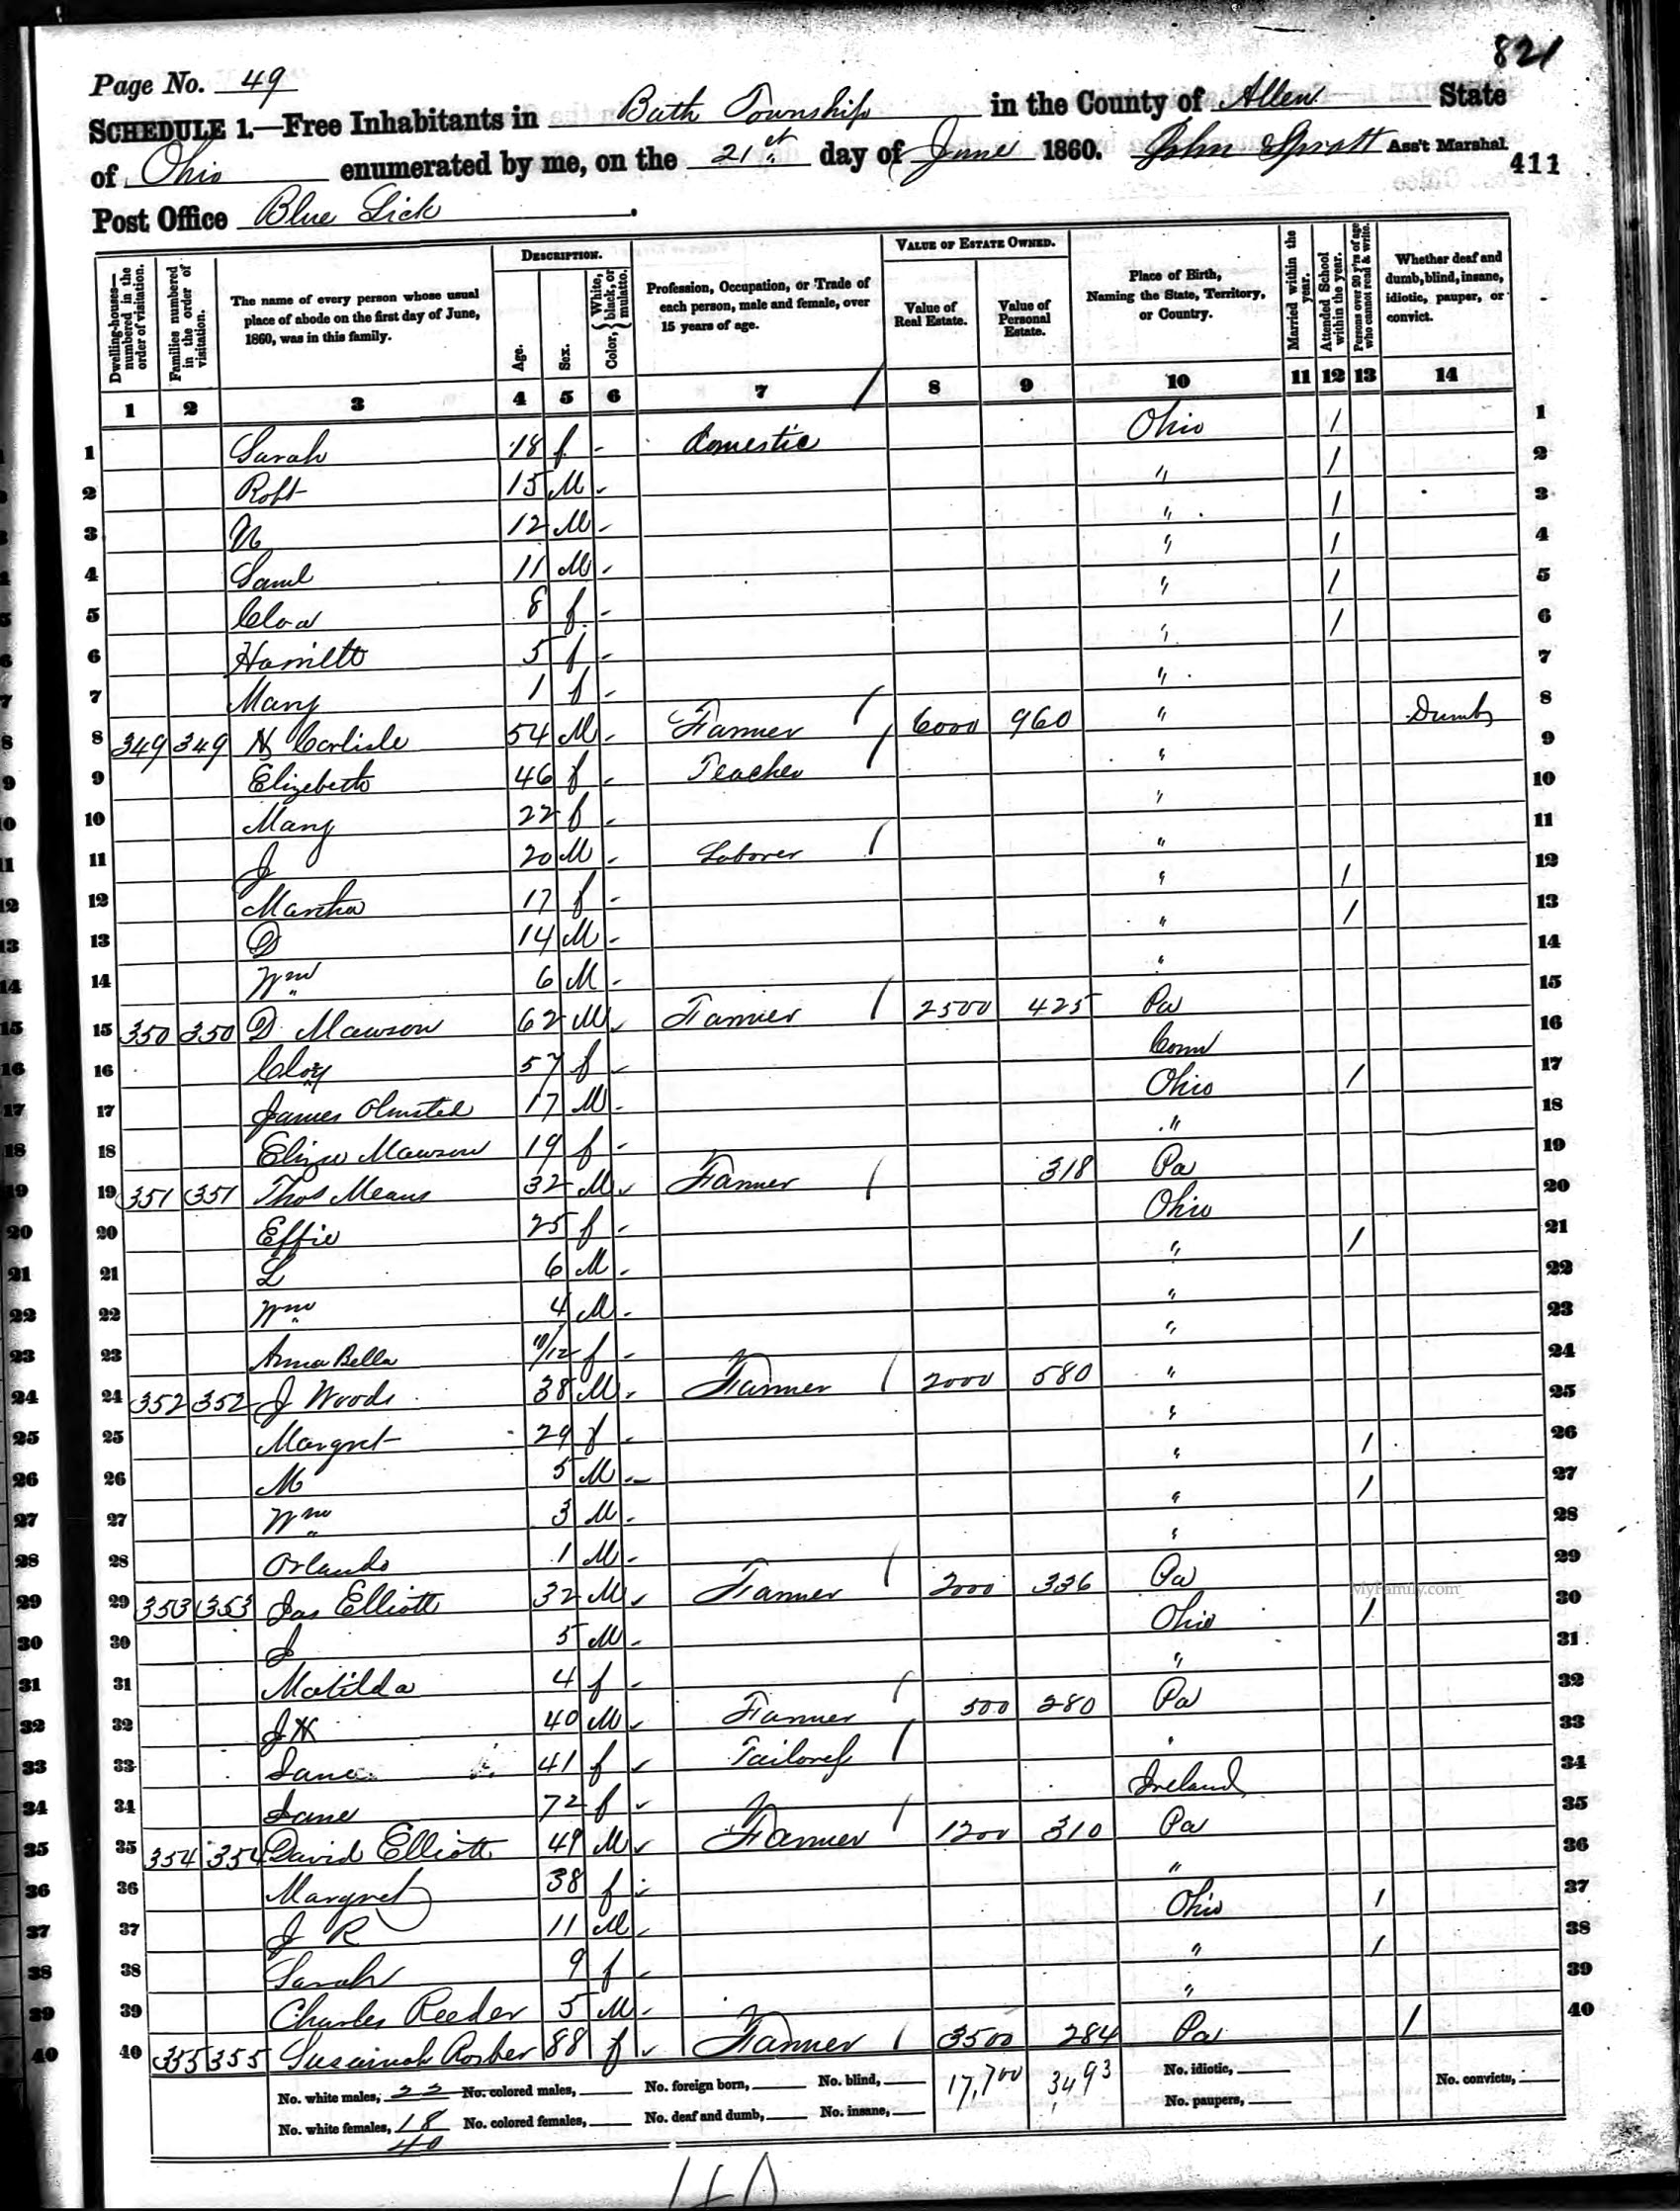 821
Page No. 49
SCHEDULE 1.—Free Inhabitants in Bath Township in the County of Allen State
of Ohio enumerated by me, on the 21st day of June 1860. John Spratt Ass't Marshal.
411
Post Office Blue Lick.
Dwelling-houses—numbered in the order of visitation.
Families numbered in the order of visitation.
The name of every person whose usual place of abode on the first day of June, 1860, was in this family.
DESCRIPTION.
Age.
Sex.
Color, { White, black, or mulatto.
Profession, Occupation, or Trade of each person, male and female, over 15 years of age.
VALUE OF ESTATE OWNED.
Value of Real Estate.
Value of Personal Estate.
Place of Birth, Naming the State, Territory, or Country.
Married within the year.
Attended School within the year.
Persons over 20 y'rs of age who cannot read & write.
Whether deaf and dumb, blind, insane, idiotic, pauper, or convict.
1 2 3 4 5 6 7 8 9 10 11 12 13 14
1 Sarah 18 f - Domestic Ohio / 1
2 Robt 15 M - " / 2
3 N 12 M - " / 3
4 Saml 11 M - " / 4
5 Cloa 8 f - " / 5
6 Hamilto 5 f - " / 6
7 Mary 1 f - " 7
8 349 349 Carlisle 54 M - Farmer / 6000 960 " Dumb 8
9 Elizebeth 46 f - Teacher / " 9
10 Mary 22 f - " 10
11 J 20 M - Laborer / " 11
12 Martha 17 f - " / 12
13 D 14 M - " / 13
14 Wm 6 M - " 14
15 350 350 D Mawson 62 M Farmer / 2500 425 Pa 15
16 Cloy 57 f Conn 16
17 James Olmsted 17 M - Ohio / 17
18 Eliza Mawson 19 f - " 18
19 351 351 Thos Means 32 M Farmer / 318 Pa 19
20 Effie 25 f - Ohio 20
21 L 6 M - " / 21
22 Wm 4 M - " 22
23 Anna Bella /12 f - " 23
24 352 352 J Woods 38 M - Farmer / 2000 580 " 24
25 Margret 29 f - " 25
26 M 5 M - " / 26
27 Wm 3 M - " / 27
28 Orlando 1 M - " 28
29 353 353 Jas Elliott 32 M Farmer / 2000 336 Pa 29
30 J 5 M - Ohio / 30
31 Matilda 4 f - " 31
32 J H 40 M Farmer / 500 280 Pa 32
33 Jane 41 f Tailoress / " 33
34 Jane 72 f Ireland 34
35 354 354 David Elliott 49 M Farmer / 1200 310 Pa 35
36 Margret 38 f " 36
37 J R 11 M - Ohio / 37
38 Sarah 9 f - " / 38
39 Charles Reeder 5 M - " 39
40 355 355 Susainah Rosber 88 f Farmer / 3500 284 Pa / 40
No. white males, 22 No. colored males, No. foreign born, No. blind, 17,700 3493 No. idiotic, No. convicts,
No. white females, 18 No. colored females, No. deaf and dumb, No. insane, No. paupers,
40
MyFamily.com